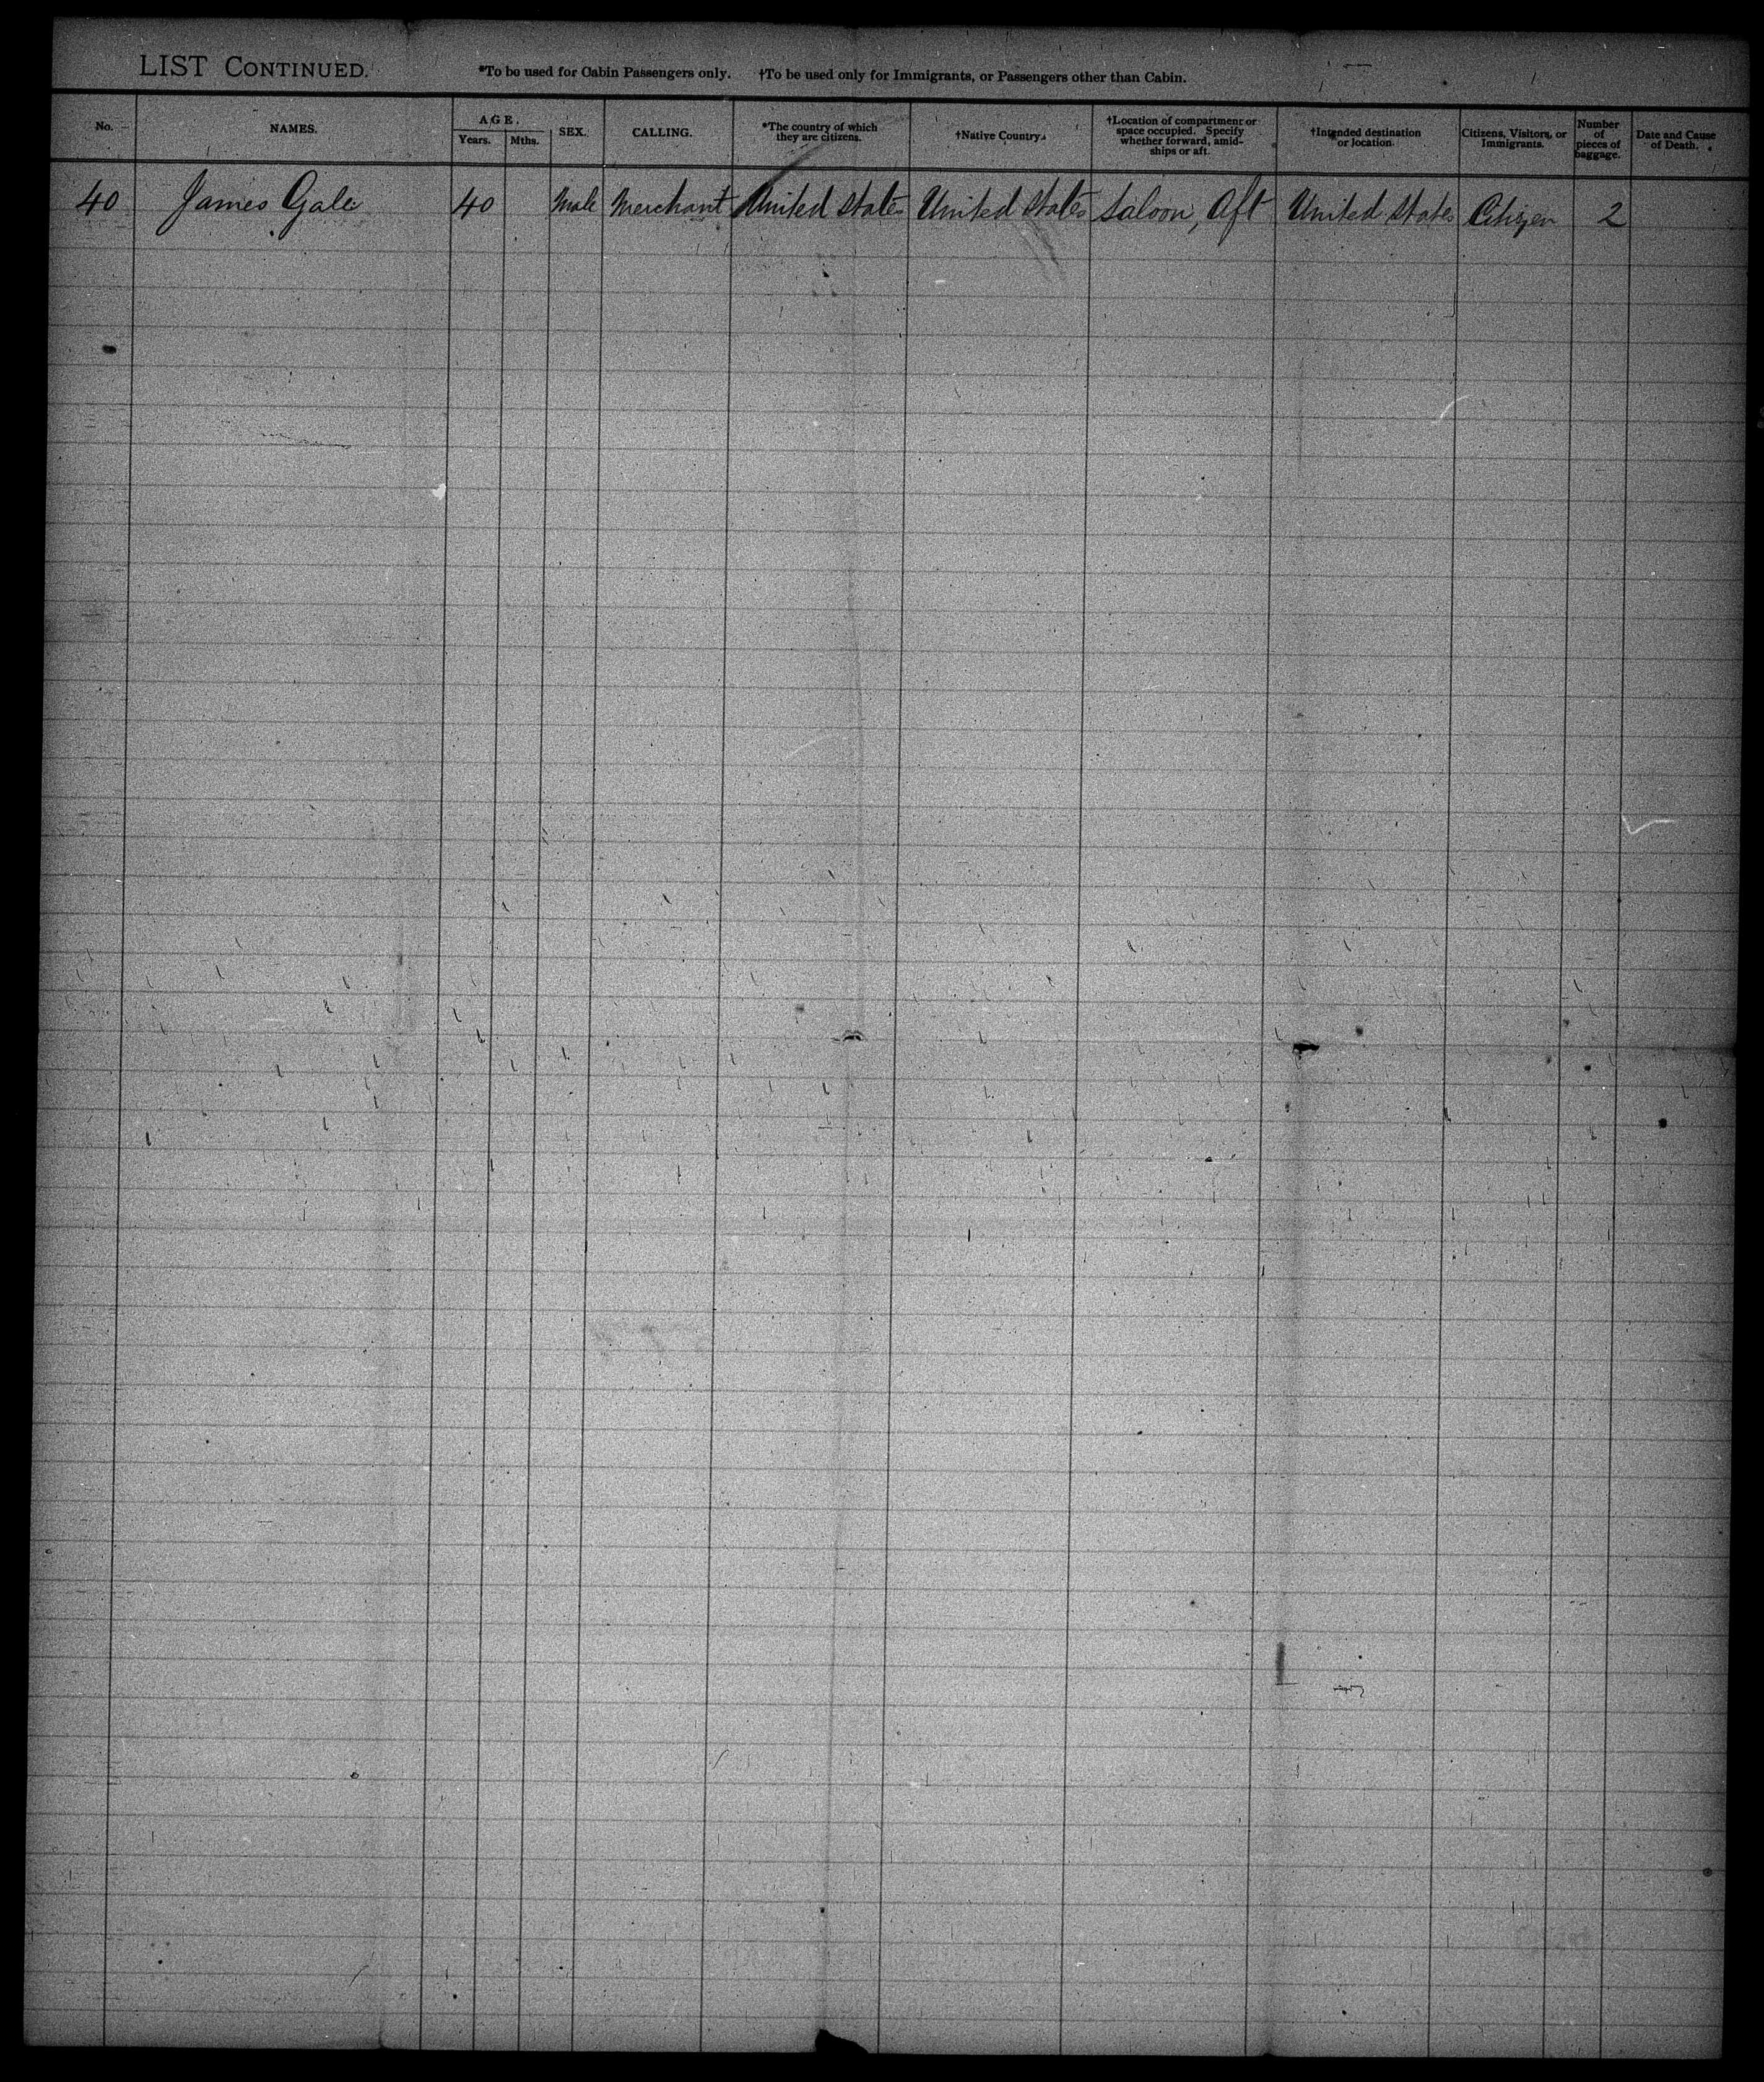 LIST CONTINUED. *To be used for Cabin Passengers only. †To be used only for Immigrants, or Passengers other than Cabin.
No. NAMES. AGE. Years. Mths. SEX. CALLING. *The country of which they are citizens. †Native Country. †Location of compartment or space occupied. Specify whether forward, amid-ships or aft. †Intended destination or location. Citizens, Visitors, or Immigrants. Number of pieces of baggage. Date and Cause of Death.
40 James Gale 40 Male Merchant United States United States Saloon, Aft United States Citizen 2